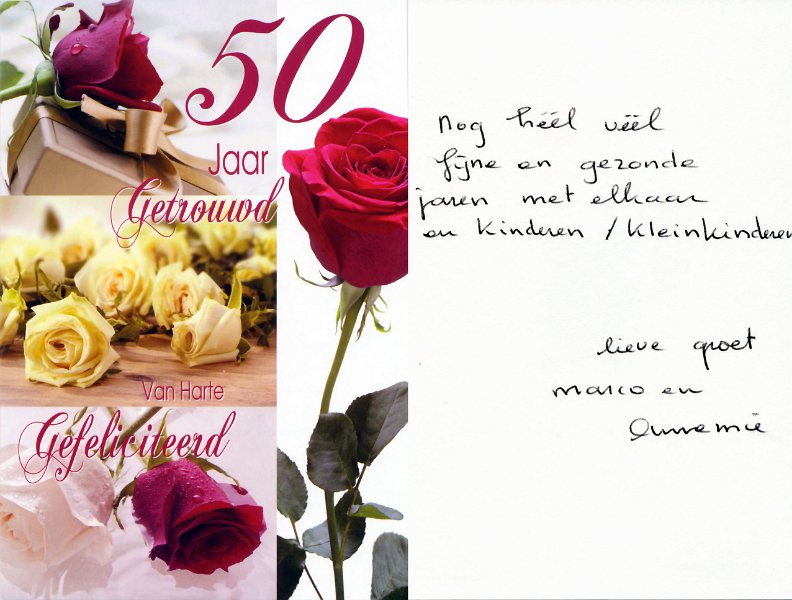 50
Jaar
Getrouwd
Van Harte
Gefeliciteerd
Nog héél véél
fijne en gezonde
jaren met elkaar
en kinderen / kleinkinderen
lieve groet
Marco en
Annemie